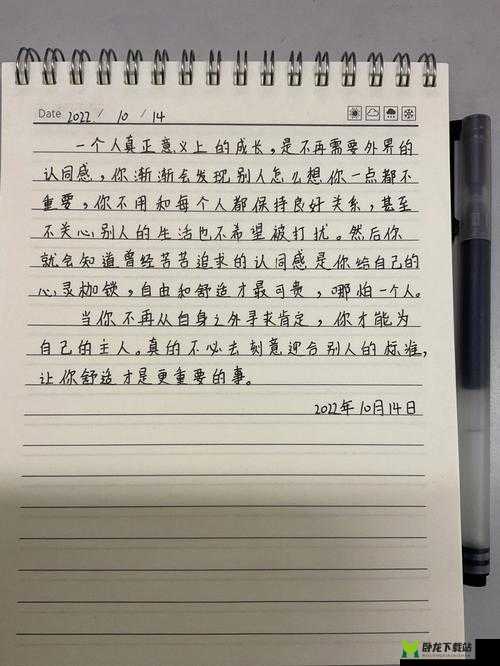 Date 2022 / 10 / 14
一个人真正意义上的成长,是不再需要外界的
认同感,你渐渐会发现别人怎么想你一点都不
重要,你不用和每个人都保持良好关系,甚至
不关心别人的生活也不希望被打扰。然后你
就会知道曾经苦苦追求的认同感是你给自己的
心灵枷锁,自由和舒适才最可贵,哪怕一个人。
当你不再从自身之外寻求肯定,你才能为
自己的主人。真的不必去刻意迎合别人的标准,
让你舒适才是更重要的事。
2022年10月14日
卧龙下载站